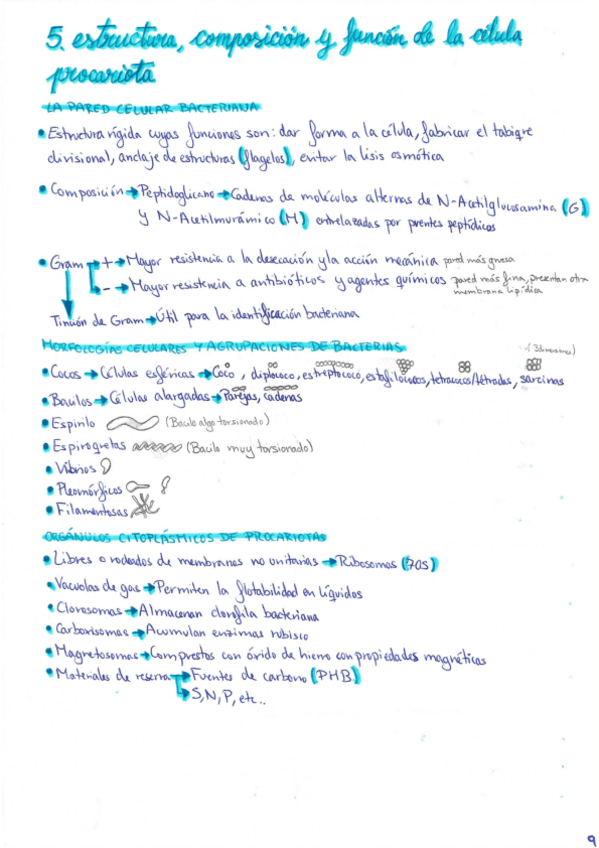 5. estructura, composición y función de la célula
procariota
LA PARED CELULAR BACTERIANA
• Estructura rígida cuyas funciones son: dar forma a la célula, fabricar el tabique
divisional, anclaje de estructuras (flagelos), evitar la lisis osmótica
• Composición → Peptidoglicano → Cadenas de moléculas alternas de N-Acetilglucosamina (G)
y N-Acetilmurámico (M) entrelazadas por puentes peptídicos
• Gram → + → Mayor resistencia a la desecación y la acción mecánica pared más gruesa
→ - → Mayor resistencia a antibióticos y agentes químicos pared más fina, presentan otra
membrana lipídica
Tinción de Gram → Útil para la identificación bacteriana
MORFOLOGÍAS CELULARES Y AGRUPACIONES DE BACTERIAS
(3 dimensiones)
• Cocos → Células esféricas → Coco, diplococo, estreptococo, estafilococos, tetracocos/tétradas, sarcinas
• Bacilos → Células alargadas → Parejas, cadenas
• Espirilo (Bacilo algo torsionado)
• Espiroquetas (Bacilo muy torsionado)
• Vibrios
• Pleomórficos
• Filamentosas
ORGÁNULOS CITOPLÁSMICOS DE PROCARIOTAS
• Libres o rodeados de membranas no unitarias → Ribosomas (70S)
• Vacuolas de gas → Permiten la flotabilidad en líquidos
• Clorosomas → Almacenan clorofila bacteriana
• Carboxisomas → Acumulan enzimas rubisco
• Magnetosomas → Compuestos con óxido de hierro con propiedades magnéticas
• Materiales de reserva → Fuentes de carbono (PHB)
→ S, N, P, etc..
9